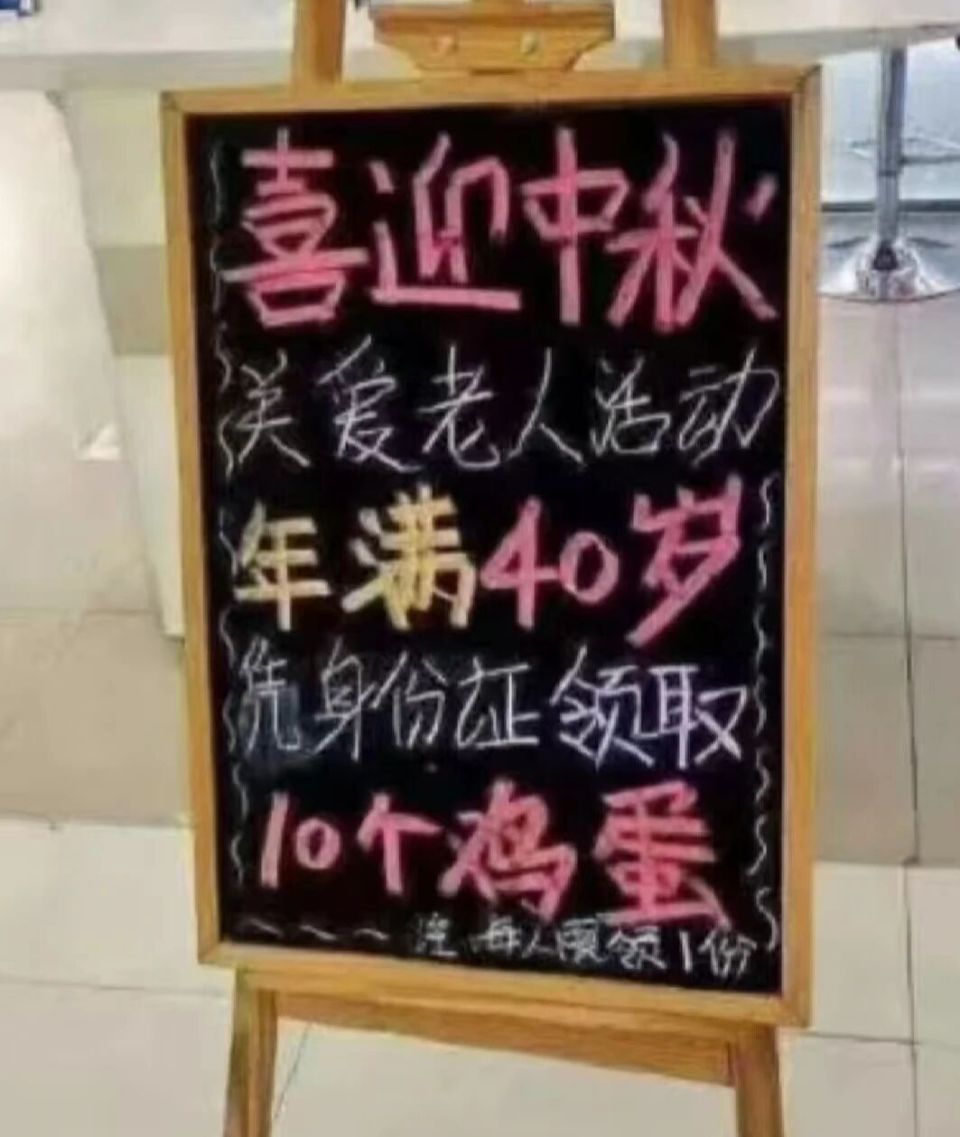 喜迎中秋
关爱老人活动
年满40岁
凭身份证领取
10个鸡蛋
注 每人限领1份